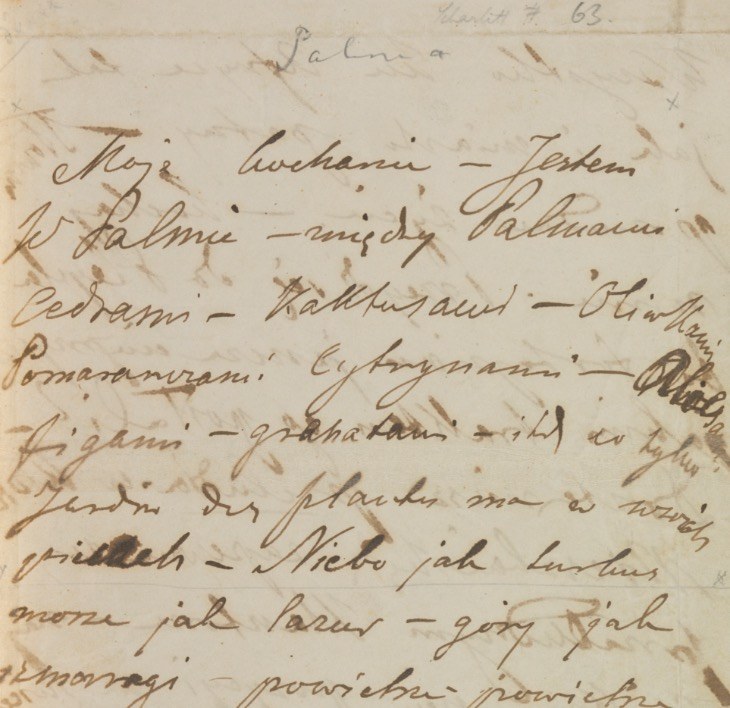 63.
Palma
Moje kochanie – Jestem
W Palmie – między Palmami
Cedrami – Kaktusami – Oliwkami
Pomaranczami Cytrynami –
figami – granatami – itd co tylko
Jardin des plantes ma w swoich
piecach – Niebo jak turkus
morze jak lazur – góry jak
szmaragi – powietrze powietrze